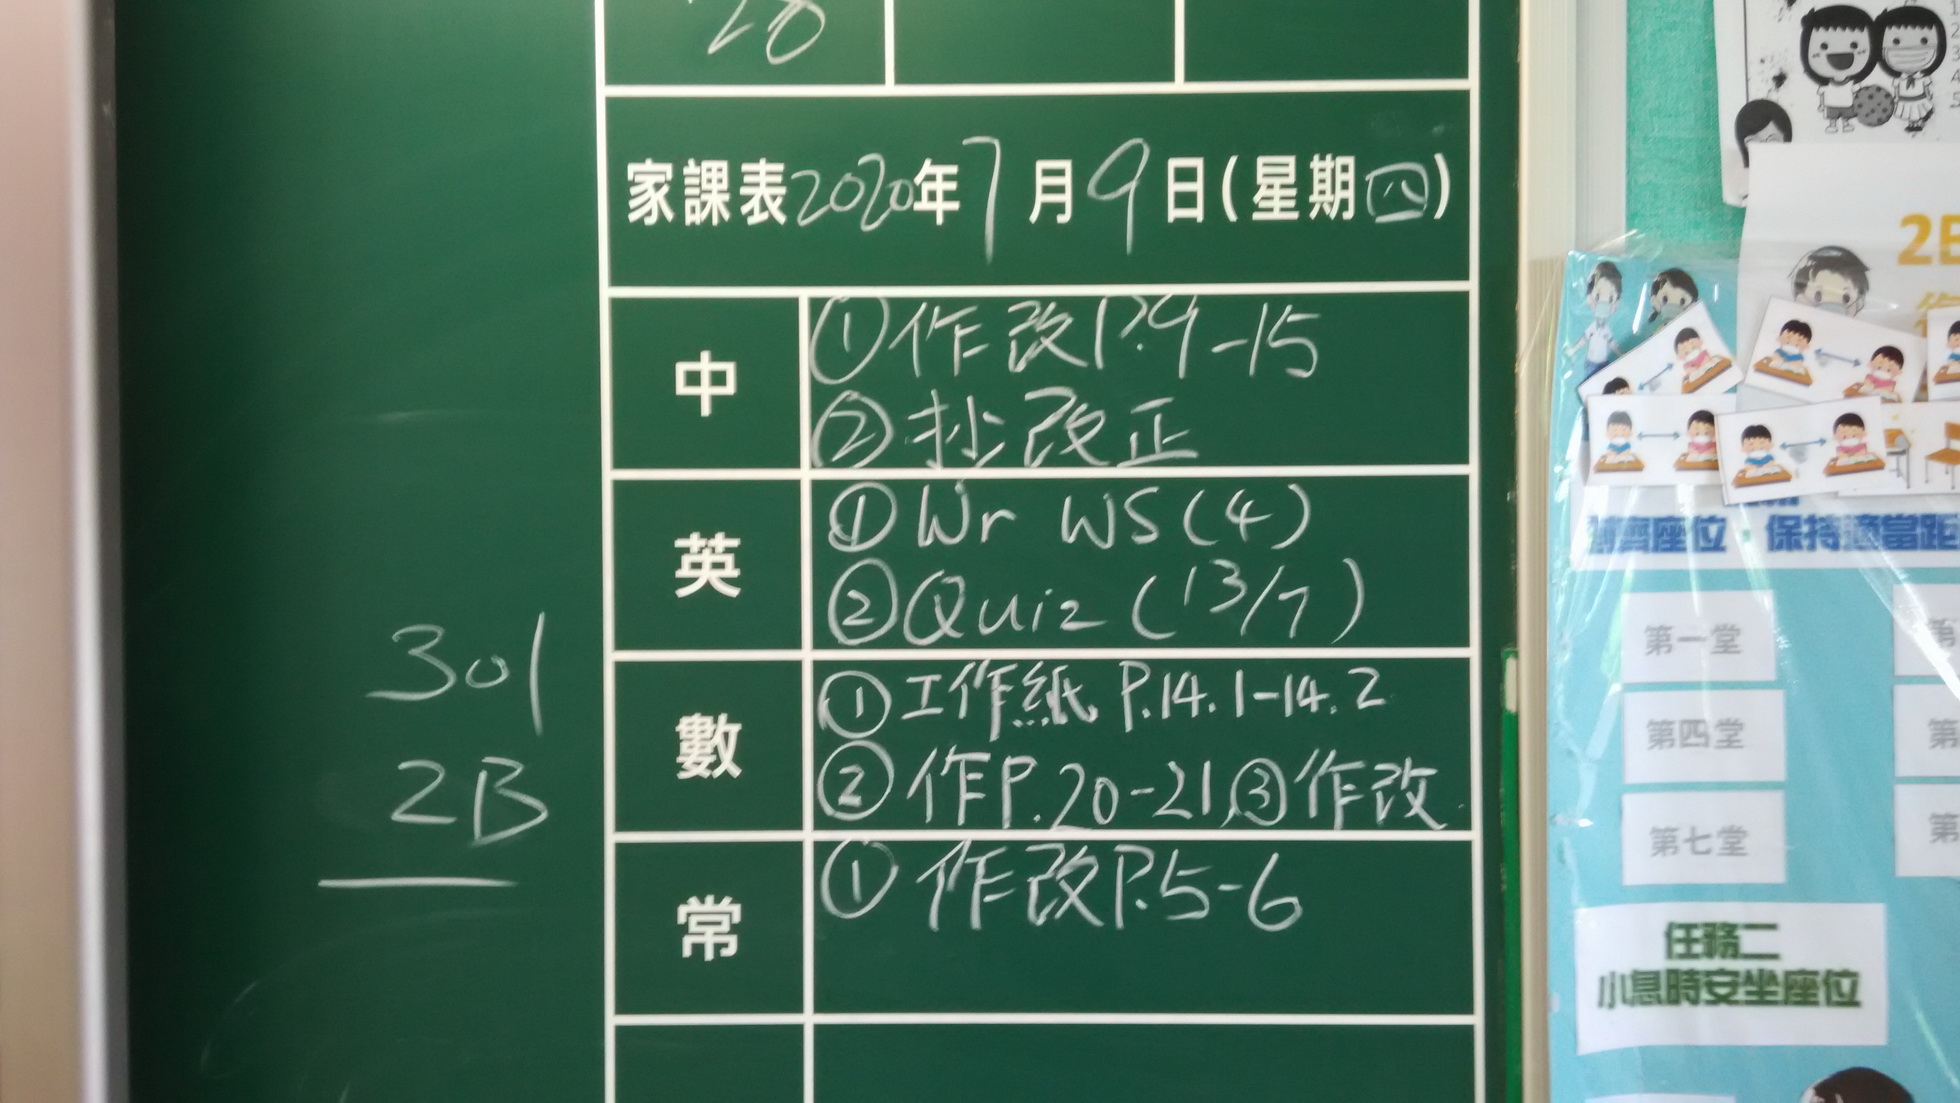 28
家課表2020年7月9日(星期四)
中
①作改P.9-15
②抄改正
英
①Wr WS(4)
②Quiz (13/7)
數
①工作紙 P.14.1-14.2
②作P.20-21,③作改
常
①作改P.5-6
301
2B
2B
座位 保持適當距
第一堂
第四堂
第七堂
任務二
小息時安坐座位